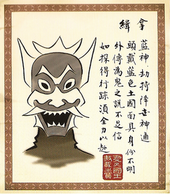 緝拿
藍神 劫持降世神通
頭戴藍色土國面具身份不明
外傳為鬼之說不足信
如探得行踪須全力以赴